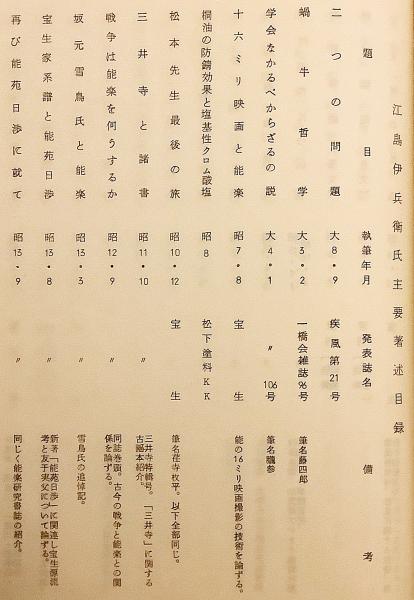 江島伊兵衛氏主要著述目録
題目 執筆年月 発表誌名 備考
二つの問題 大8・9 疾風第21号
蝸牛哲学 大3・2 一橋会雑誌96号 筆名藤四郎
学会なかるべからざるの説 大4・1 〃 106号 筆名曠参
十六ミリ映画と能楽 昭7・8 宝生 能の16ミリ映画撮影の技術を論ずる。
桐油の防錆効果と塩基性クロム酸塩 昭8 松下塗料KK
松本先生最後の旅 昭10・12 宝生 筆名荏寺枚平。以下全部同じ。
三井寺と諸書 昭11・10 〃 三井寺特輯号。「三井寺」に関する
古謡本紹介。
戦争は能楽を何うするか 昭12・9 〃 同誌巻頭。古今の戦争と能楽との関
係を論ずる。
坂元雪鳥氏と能楽 昭13・3 〃 雪鳥氏の追悼記。
宝生家系譜と能苑日渉 昭13・8 〃 新著「能苑日渉」に関連し宝生源流
考と友于実父について論ずる。
再び能苑日渉に就て 昭13・9 〃 同じく能楽研究書誌の紹介。